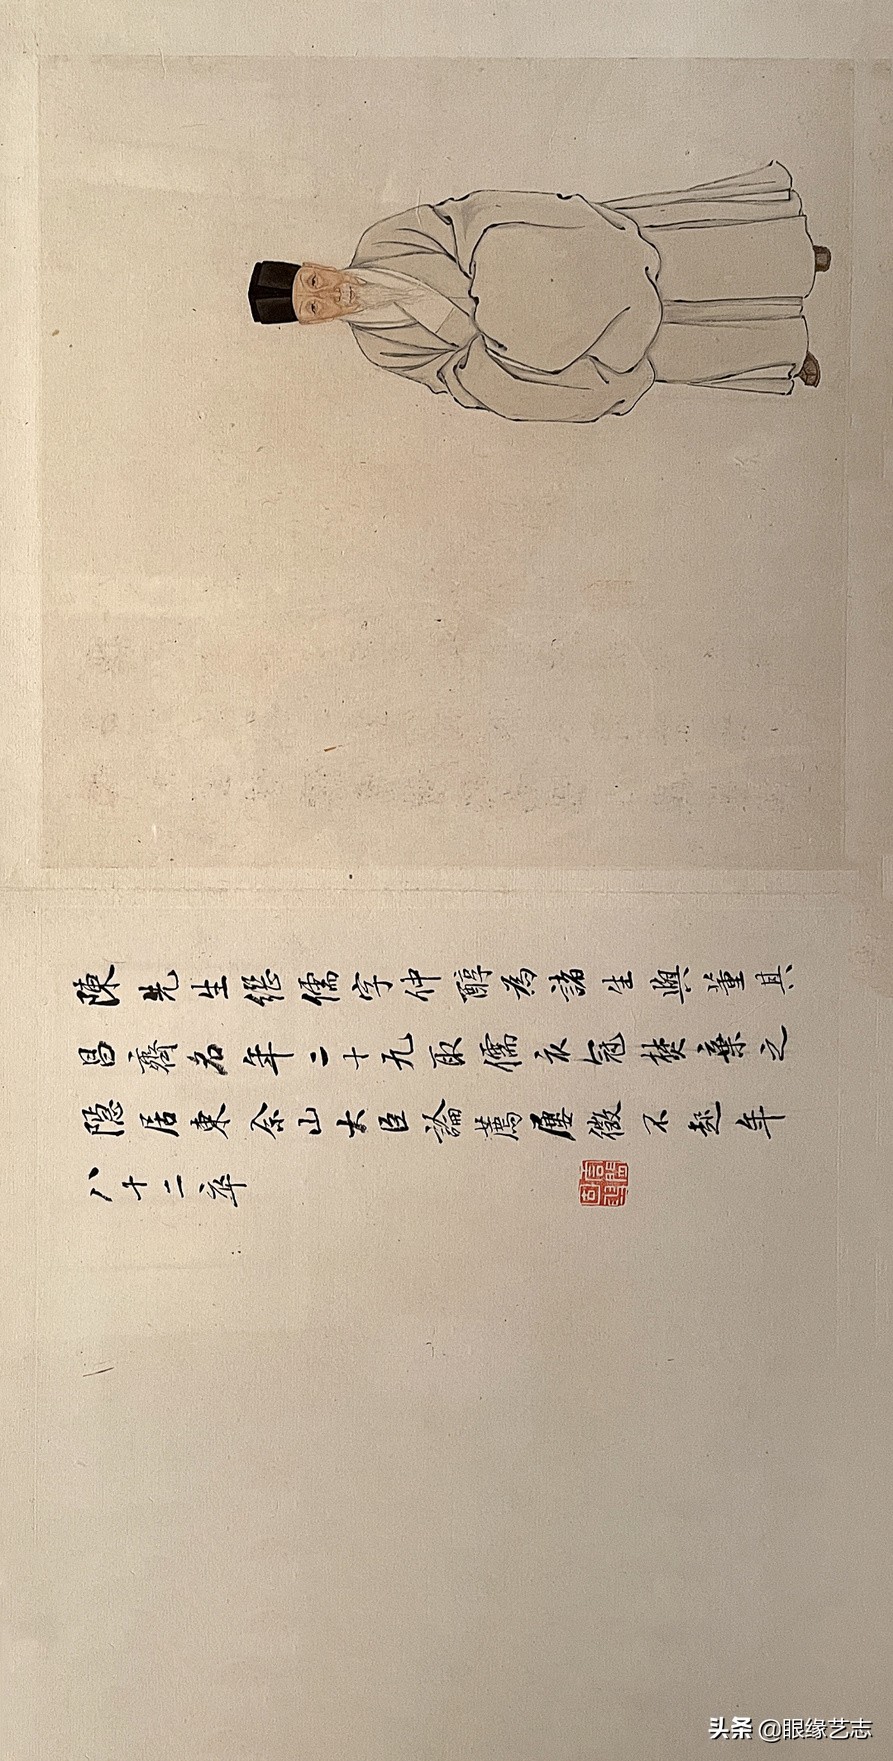 陳先生繼儒字仲醇為諸生與董其
昌齊名年二十九取儒衣冠焚棄之
隱居東佘山大臣論薦屢徵不起年
八十二卒
头条 @眼缘艺志